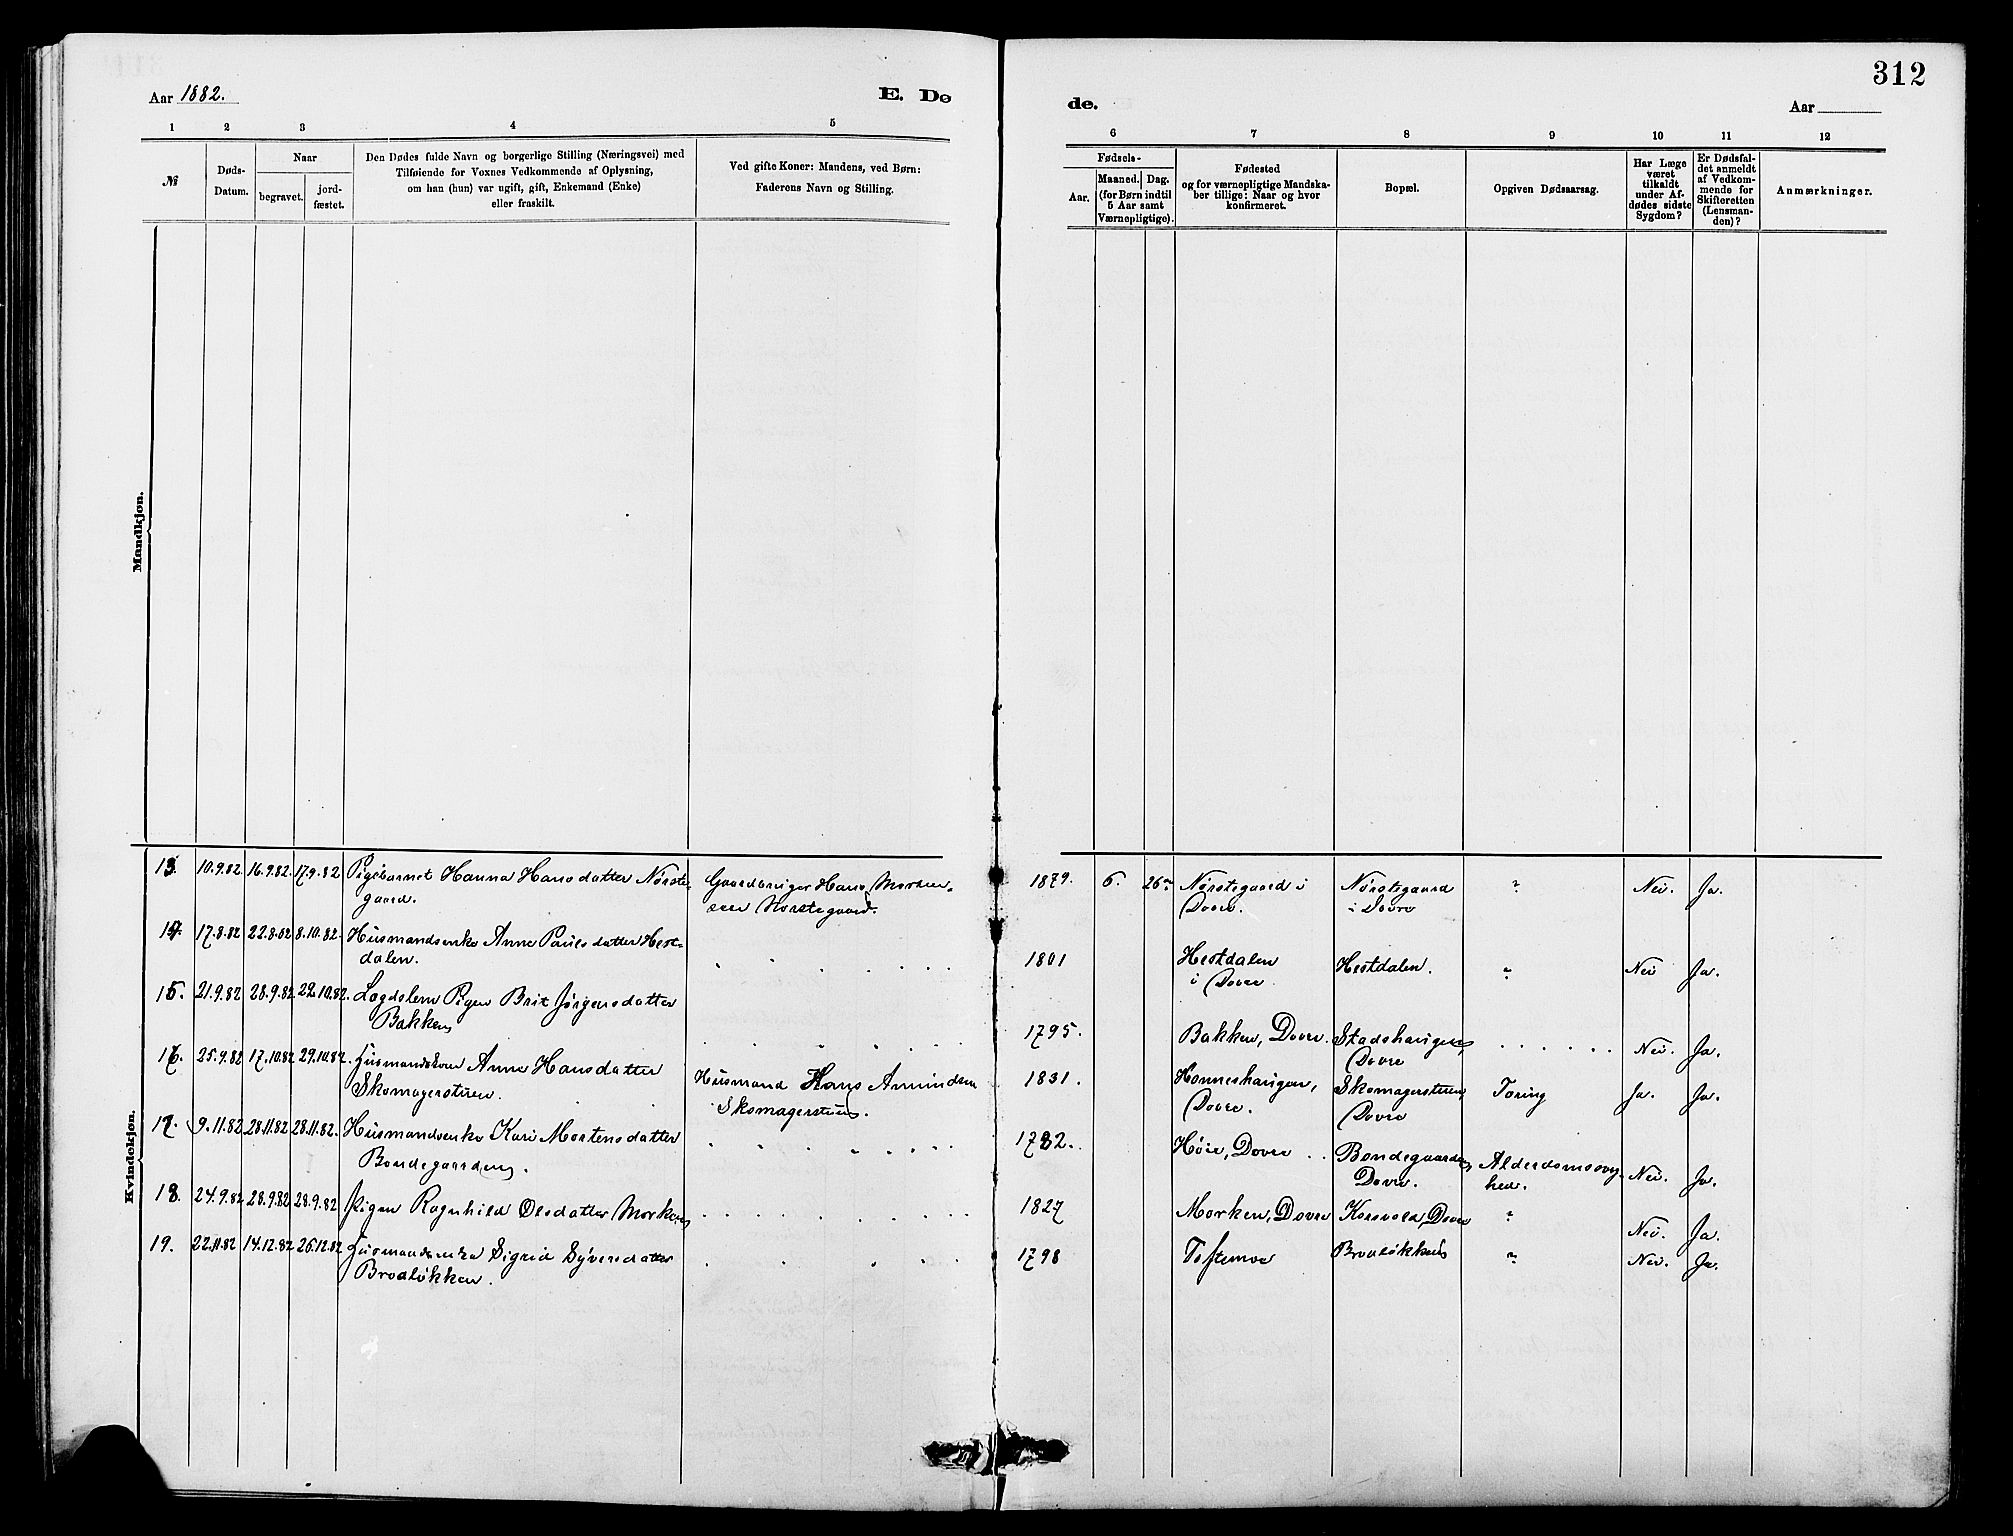 312
Aar 1882.
E. Dø
de.
Aar
1 2 3 4 5
6 7 8 9 10 11 12
№
Døds-
Datum.
Naar
begravet.
jord-
fæstet.
Den Dødes fulde Navn og borgerlige Stilling (Næringsvei) med
Tilføiende for Voxnes Vedkommende af Oplysning,
om han (hun) var ugift, gift, Enkemand (Enke)
eller fraskilt.
Ved gifte Koner: Mandens, ved Børn:
Faderens Navn og Stilling.
Fødsels-
Aar.
Maaned. Dag.
(for Børn indtil
5 Aar samt
Værnepligtige).
Fødested
og for værnepligtige Mandska-
ber tillige: Naar og hvor
konfirmeret.
Bopæl.
Opgiven Dødsaarsag.
Har Læge
været
tilkaldt
under Af-
dødes sidste
Sygdom?
Er Dødsfal-
det anmeldt
af Vedkom-
mende for
Skifteretten
(Lensman-
den)?
Anmærkninger.
Mandkjøn.
Kvindekjøn.
13. 10.9.82 16.9.82 17.9.82 Pigebarnet Hanna Hansdatter Nørste-
gaard.
Gaardbruger Hans Morten-
sen Nørstegaard.
1879. 6. 26 Nørstegaard i
Dovre.
Nørstegaard
i Dovre
? Nei. Ja.
14. 17.8.82 22.8.82 8.10.82. Husmandsenke Anne Paulsdatter Hest-
dalen.
1801 Hestdalen
i Dovre
Hestdalen. ? Nei Ja.
15. 21.9.82 28.9.82 22.10.82. Lægdslem Pigen Brit Jørgensdatter
Bakken
1795. Bakken, Dovre. Stadshaugen,
Dovre
Nei. Ja.
16. 25.9.82 17.10.82 29.10.82. Husmandskone Anne Hansdatter
Skomagerstuen.
Husmand Hans Amundsen
Skomagerstuen.
1831. Honneshaugen,
Dovre.
Skomagerstuen,
Dovre
Tæring Ja. Ja.
17. 9.11.82 28.11.82 28.11.82. Husmandsenke Kari Mortensdatter
Bondegaarden.
1782. Høie, Dovre Bondegaarden,
Dovre.
Alderdomssvag-
hed.
Nei. Ja.
18. 24.9.82 28.9.82 28.9.82 Pigen Ragnhild Olsdatter Morken
1827 Morken, Dovre Korsvold, Dovre ? Nei. Ja.
19. 22.11.82 14.12.82 26.12.82 Husmandsenke Sigrid Syversdatter
Broaløkken.
1798 Toftemoe Broaløkken ? Nei. Ja.